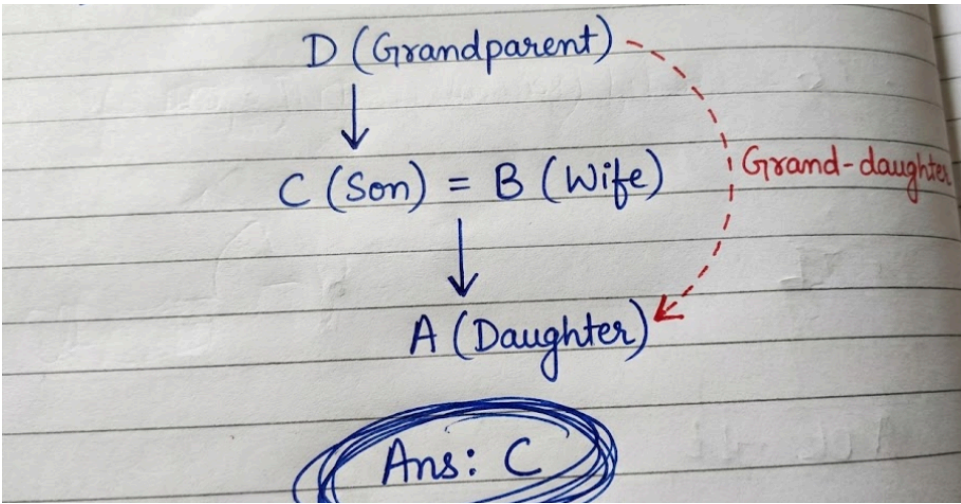 D (Grandparent)
C (Son) = B (Wife)
Grand-daughter
A (Daughter)
Ans: C